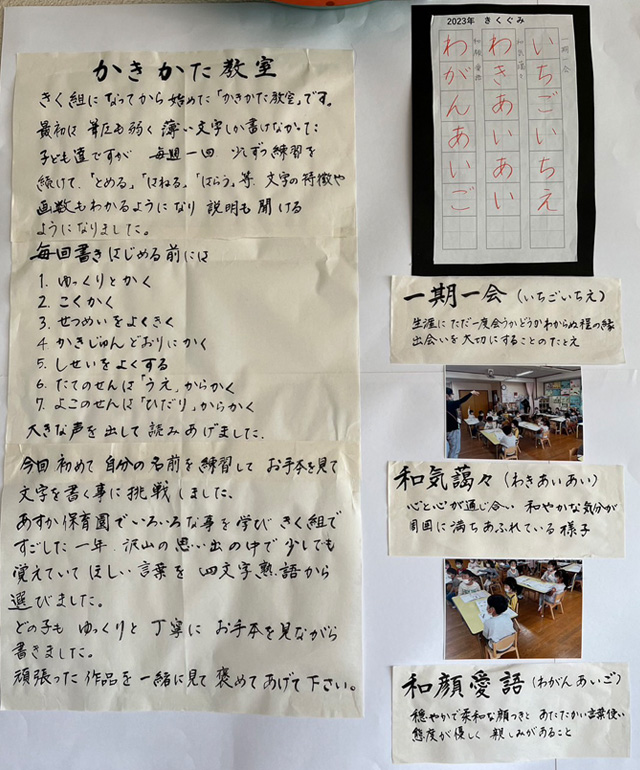 かきかた教室
きく組になってから始めた「かきかた教室」です。
最初は 筆圧も弱く 薄い文字しか書けなかった
子ども達ですが 毎週一回 少しずつ練習を
続けて、「とめる」「はねる」「はらう」等 文字の特徴や
画数もわかるようになり 説明も聞ける
ようになりました。
毎回書きはじめる前には
1. ゆっくりとかく
2. こくかく
3. せつめいをよくきく
4 かきじゅんどおりにかく
5. しせいをよくする
6. たてのせんは「うえ」からかく
7. よこのせんは「ひだり」からかく
大きな声を出して読みあげました。
今回初めて自分の名前を練習して お手本を見て
文字を書く事に挑戦しました、
あすか保育園でいろいろな事を学び きく組で
すごした一年、沢山の思い出の中で少しでも
覚えていてほしい言葉を 四文字熟語から
選びました。
どの子も ゆっくりと 丁寧に お手本を見ながら
書きました。
頑張った作品を一緒に見て褒めてあげて下さい。
2023年 きくぐみ
一期一会
いちごいちえ
和気藹々
わきあいあい
和顔愛語
わがんあいご
一期一会(いちごいちえ)
生涯にただ一度会うかどうかわからぬ程の縁
出会いを大切にすることのたとえ
和気藹々(わきあいあい)
心と心が通じ合い 和やかな気分が
周囲に満ちあふれている様子
和顔愛語(わがんあいご)
穏やかで柔和な顔つきと あたたかい言葉使い
態度が優しく 親しみがあること